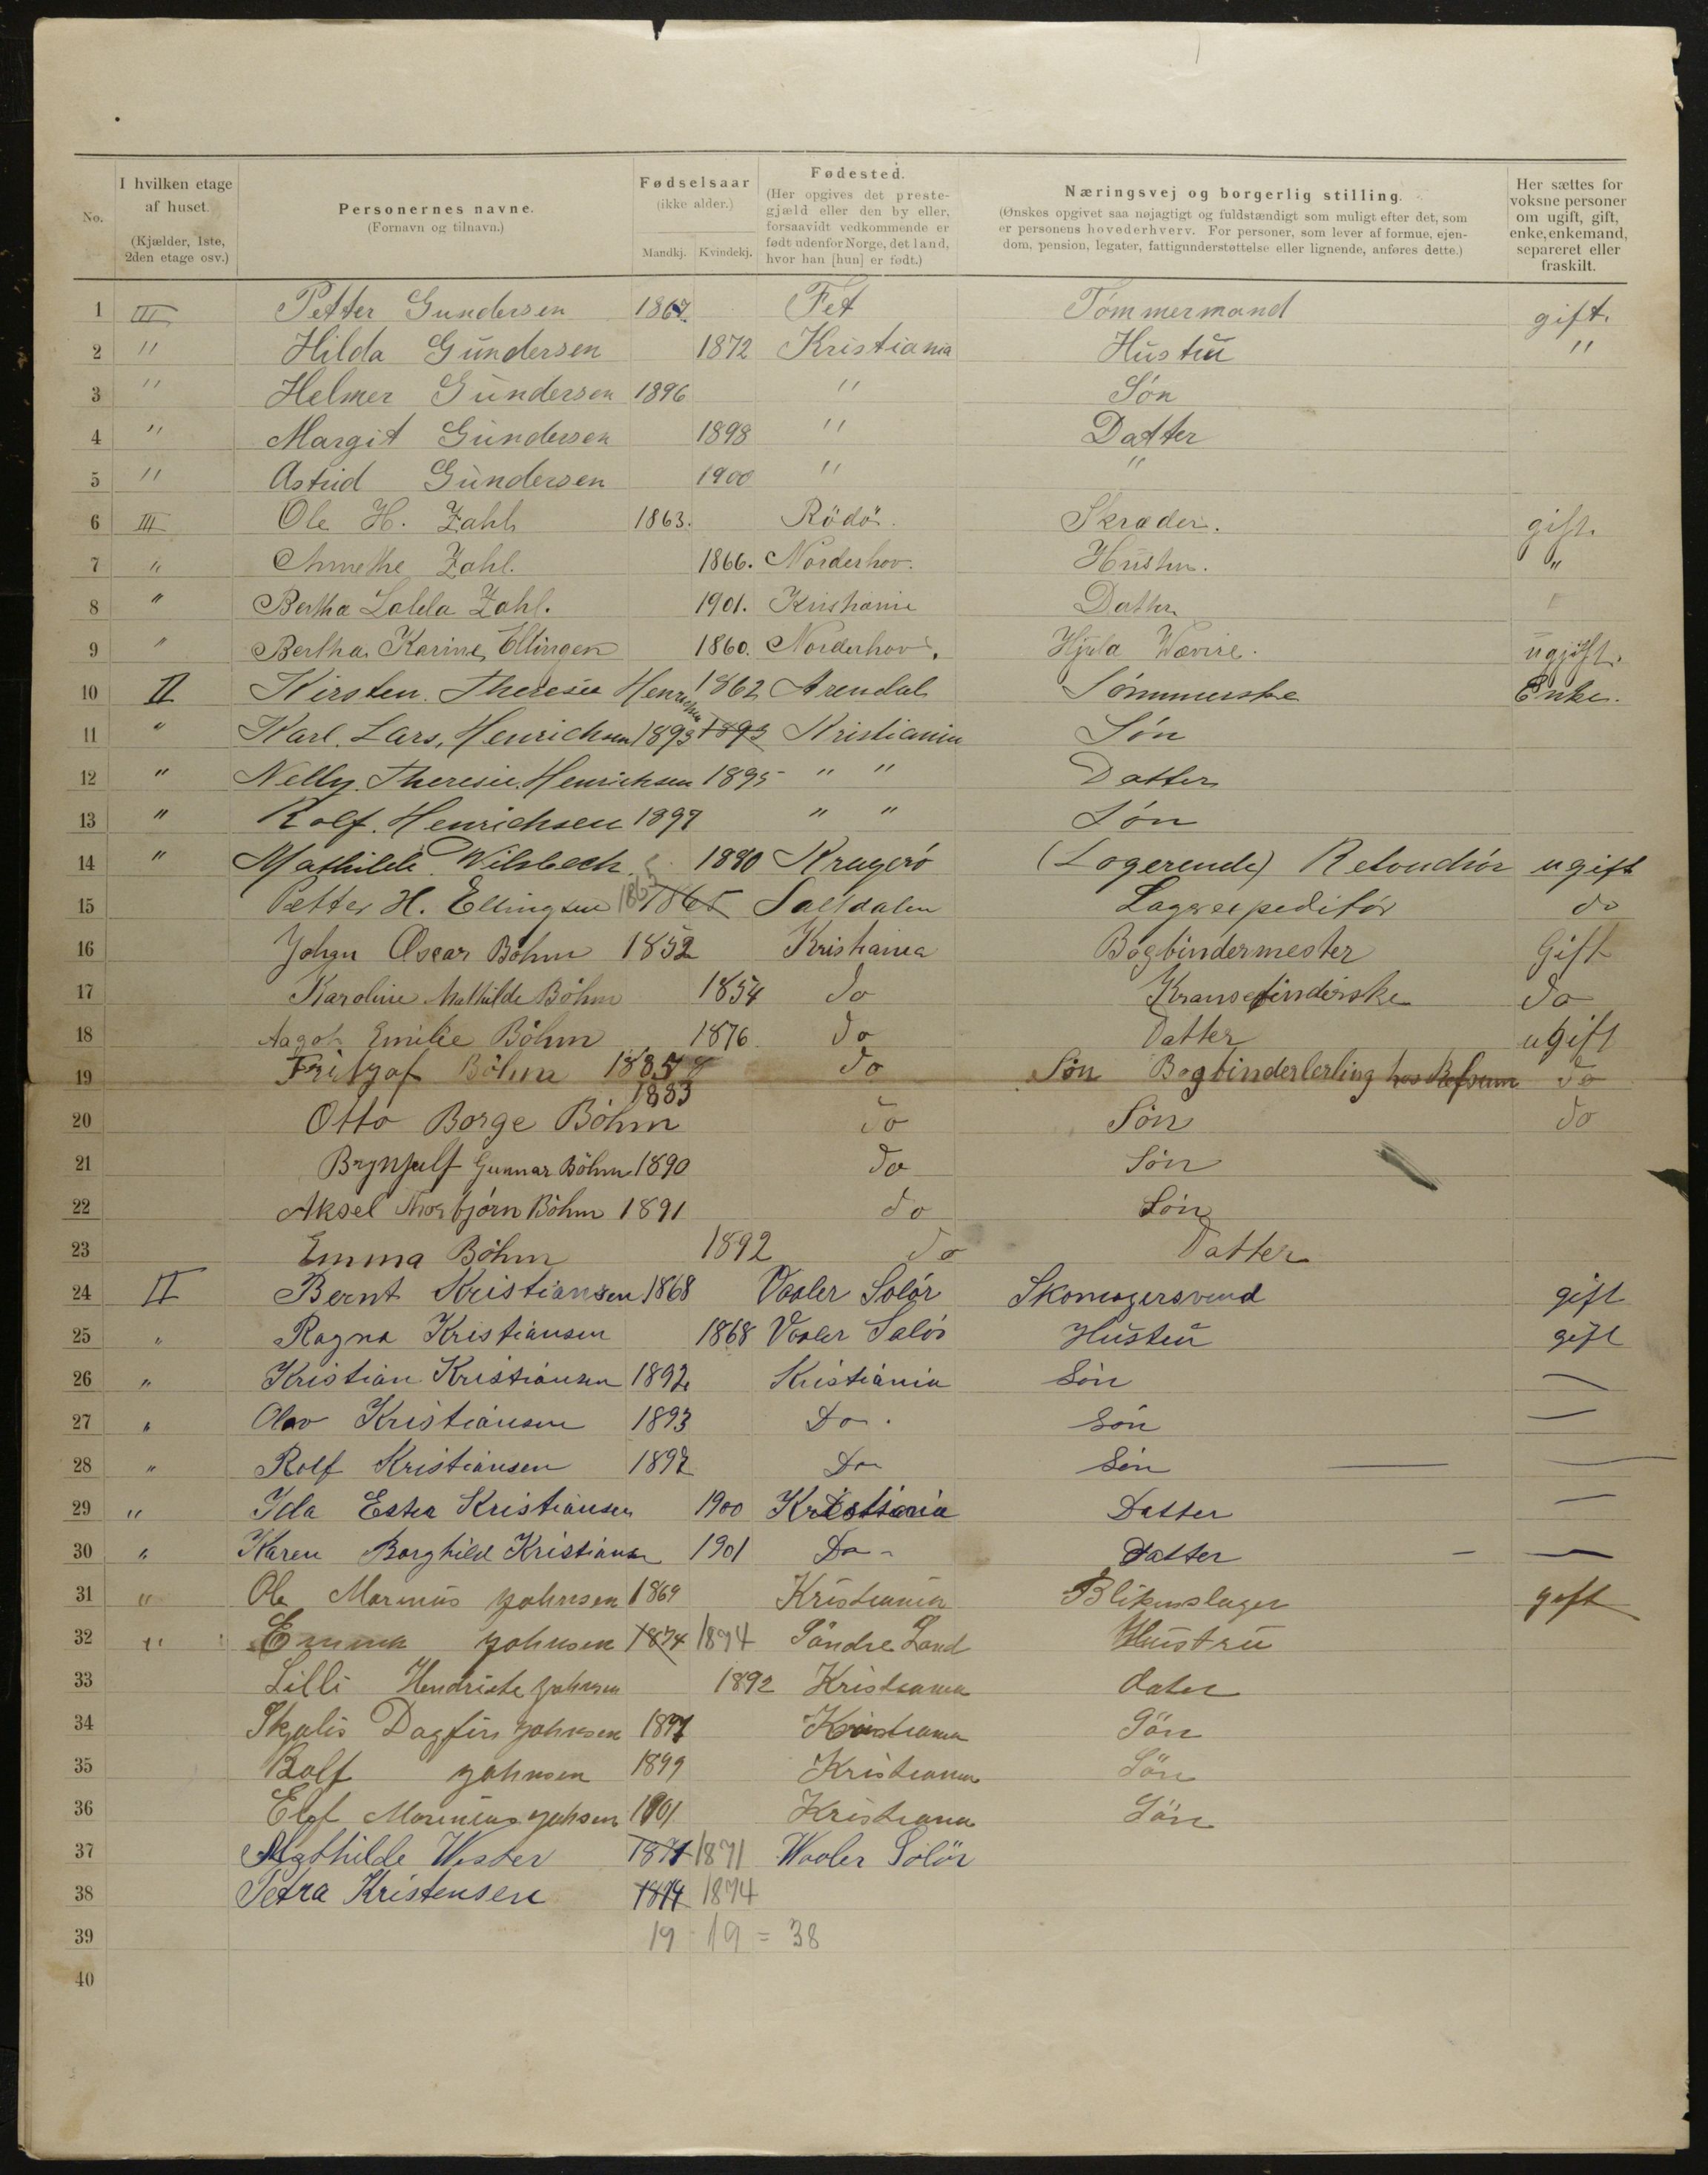 No. I hvilken etage af huset. (Kjælder, 1ste, 2den etage osv.) Personernes navne. (Fornavn og tilnavn.) Fødselsaar (ikke alder.) Mandkj. Kvindekj. Fødested. (Her opgives det prestegjæld eller den by eller, forsaavidt vedkommende er født udenfor Norge, det land, hvor han [hun] er født.) Næringsvej og borgerlig stilling. (Ønskes opgivet saa nøjagtigt og fuldstændigt som muligt efter det, som er personens hovederhverv. For personer, som lever af formue, ejendom, pension, legater, fattigunderstøttelse eller lignende, anføres dette.) Her sættes for voksne personer om ugift, gift, enke, enkemand, separeret eller fraskilt.
1 III Petter Gundersen 1867. Fet Tømmermand gift.
2 " Hilda Gundersen 1872 Kristiania Hustru "
3 " Helmer Gundersen 1896 " Søn
4 " Margit Gundersen 1898 " Datter
5 " Astrid Gundersen 1900 " "
6 III Ole H. Zahl 1863. Rødö. Skræder. gift.
7 " Annethe Zahl. 1866. Norderhov. Hustru. "
8 " Bertha Zahl. 1901. Kristiania Datter
9 " Bertha Karine Ellingen 1860. Norderhov. Hjula Wæveri. ugift.
10 II Kirsten Theresie Henrichsen 1862 Arendal Sømmerske Enke.
11 " Karl. Lars, Henrichsen 1893 1893 Kristiania Søn
12 " Nelly. Theresie. Henrichsen 1895 " " Datter
13 " Rolf. Henrichsen 1897 " " Søn
14 " Mathilde Wilsbech. 1880 Kragerö (Logerende) ugift
15 Petter H. Ellingsen 1865 1865 Saltdalen Lagerexpeditör do
16 Johan Oscar Bøhm 1852 Kristiania Bogbindermester Gift
17 Karoline Mathilde Bøhm 1854 do Kransebinderske do
18 Aagot Emilie Bøhm 1876 do Datter ugift
19 Fritjof Bøhm 1885 do Søn Bogbinderlerling hos Refsum do
20 Otto Borge Bøhm 1883 do Søn do
21 Brynjulf Gunnar Bøhm 1890 do Søn
22 Aksel Thorbjørn Bøhm 1891 do Søn
23 Emma Bøhm 1892 do Datter
24 II Bernt Kristiansen 1868 Vaaler Solör Skomagersvend gift
25 " Ragna Kristiansen 1868 Vaaler Solör Hustru gift
26 " Kristian Kristiansen 1892 Kristiania Sön —
27 " Olav Kristiansen 1893 Do. Sön —
28 " Rolf Kristiansen 1897 Do Sön — —
29 " Ida Ester Kristiansen 1900 Kristiania Datter —
30 " Karen Borghild Kristiansen 1901 Do - Datter - —
31 " Ole Marinus Johnsen 1869 Kristiania Blikenslager gift
32 " Emma Johnsen 1874 1874 Söndre Land Hustru
33 Lilli Hendriete Johnsen 1892 Kristiania dater
34 Skjalis Dagfin Johnsen 1897 Kristiania Sön
35 Rolf Johnsen 1899 Kristiania Sön
36 Elof Marinius Johnsen 1901 Kristiania Sön
37 Mathilde Wester 1871 1871 Waaler Solör
38 Petra Kristensen 1874 1874
39 19 19 = 38
40